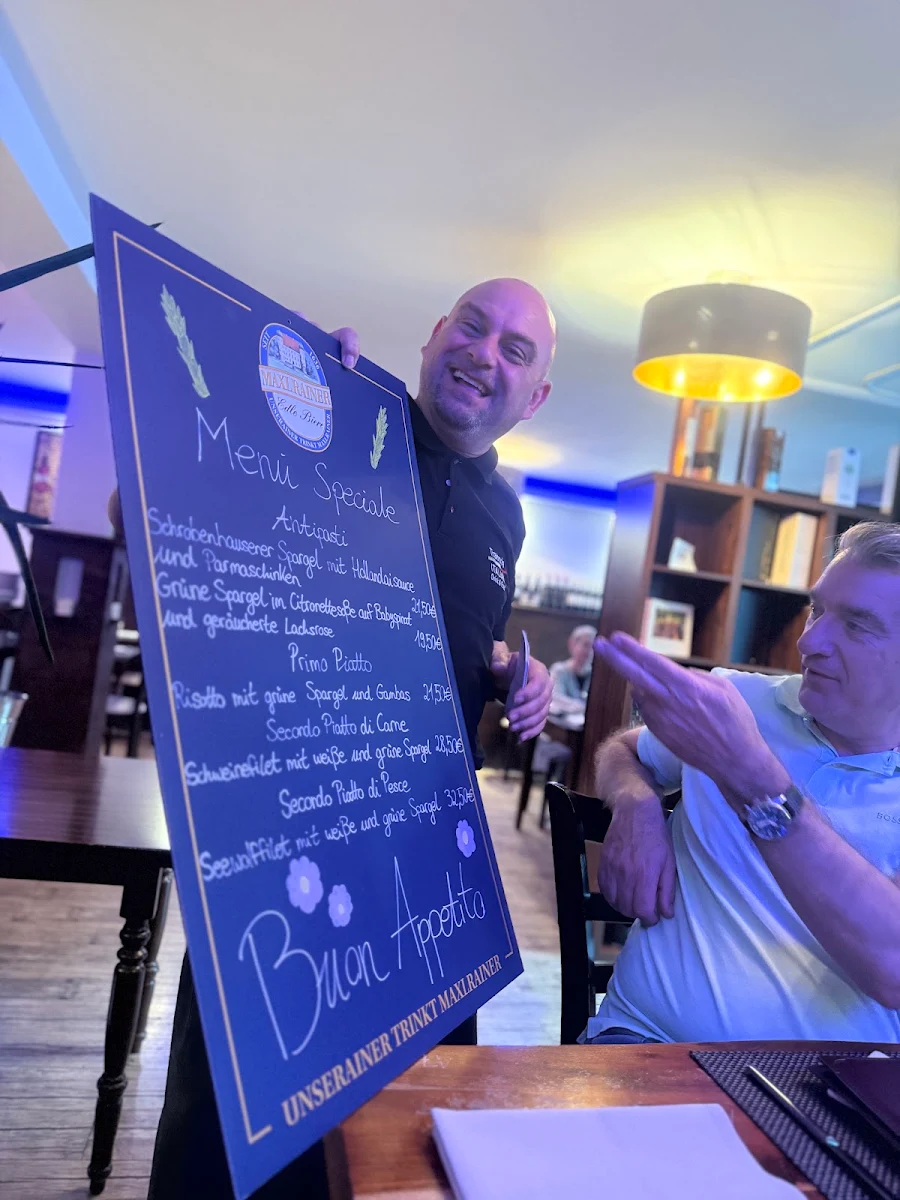 SEIT 1636
MAXLRAINER
Edle Biere
UNSERAINER TRINKT MAXLRAINER
Menù Speciale
Antipasti
Schrobenhausener Spargel mit Hollandaisauce
und Parmaschinken 21,50€
Grüne Spargel im Citronettesoße auf Babyspinat
und geräucherte Lachsrose 19,50€
Primo Piatto
Risotto mit grüne Spargel und Gambas 21,50€
Secordo Piatto di Carne
Schweinefilet mit weiße und grüne Spargel 28,50€
Secordo Piatto di Pesce
Seewolffilet mit weiße und grüne Spargel 32,50€
Buon Appetito
UNSERAINER TRINKT MAXLRAINER
BOSS